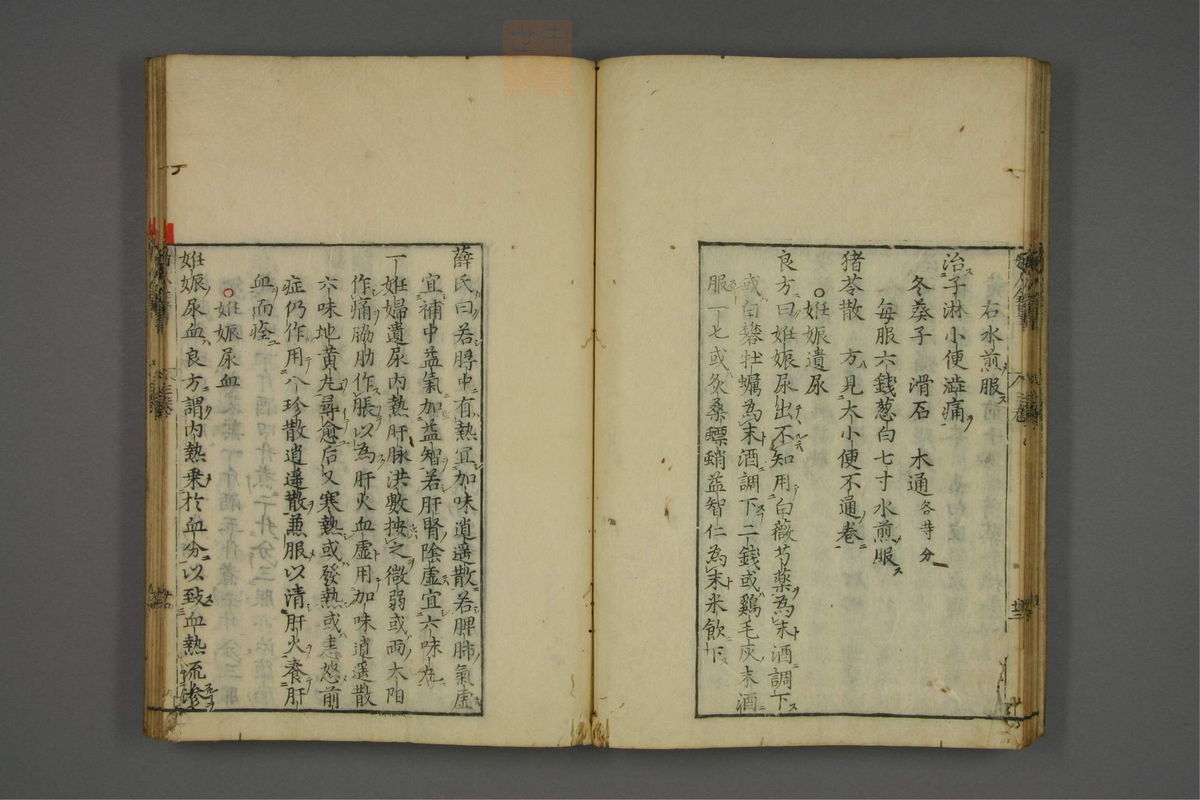 右水煎服ス
治子淋小便澁痛
冬葵子 滑石 木通各等分
每服六錢葱白七寸水煎服ス
猪苓散 方見大小便不通卷
○妊娠遺尿
良方曰妊娠尿出不知用白薇芍藥為末酒調下ス
或白礬牡蠣為末酒調下二錢或鷄毛灰末酒
服一七或炙桑螵蛸益智仁為末米飲下
薛氏曰若脬中有熱宜加味逍遥散若脾肺氣虛
宜補中益氣加益智若肝腎陰虛宜六味丸
一妊婦遺尿内熱肝脉洪數按之微弱或兩太陽
作痛脇肋作脹以為肝火血虛用加味逍遥散
六味地黄丸尋愈后又寒熱或發熱或恚怒前
症仍作用八珍散逍遥散兼服以清肝火養肝
血而痊
○妊娠尿血
妊娠尿血良方謂内熱乗於血分以致血熱流滲